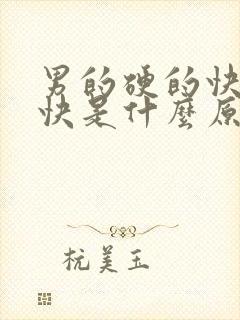 男的硬的快
快是什麼原
杭美玉